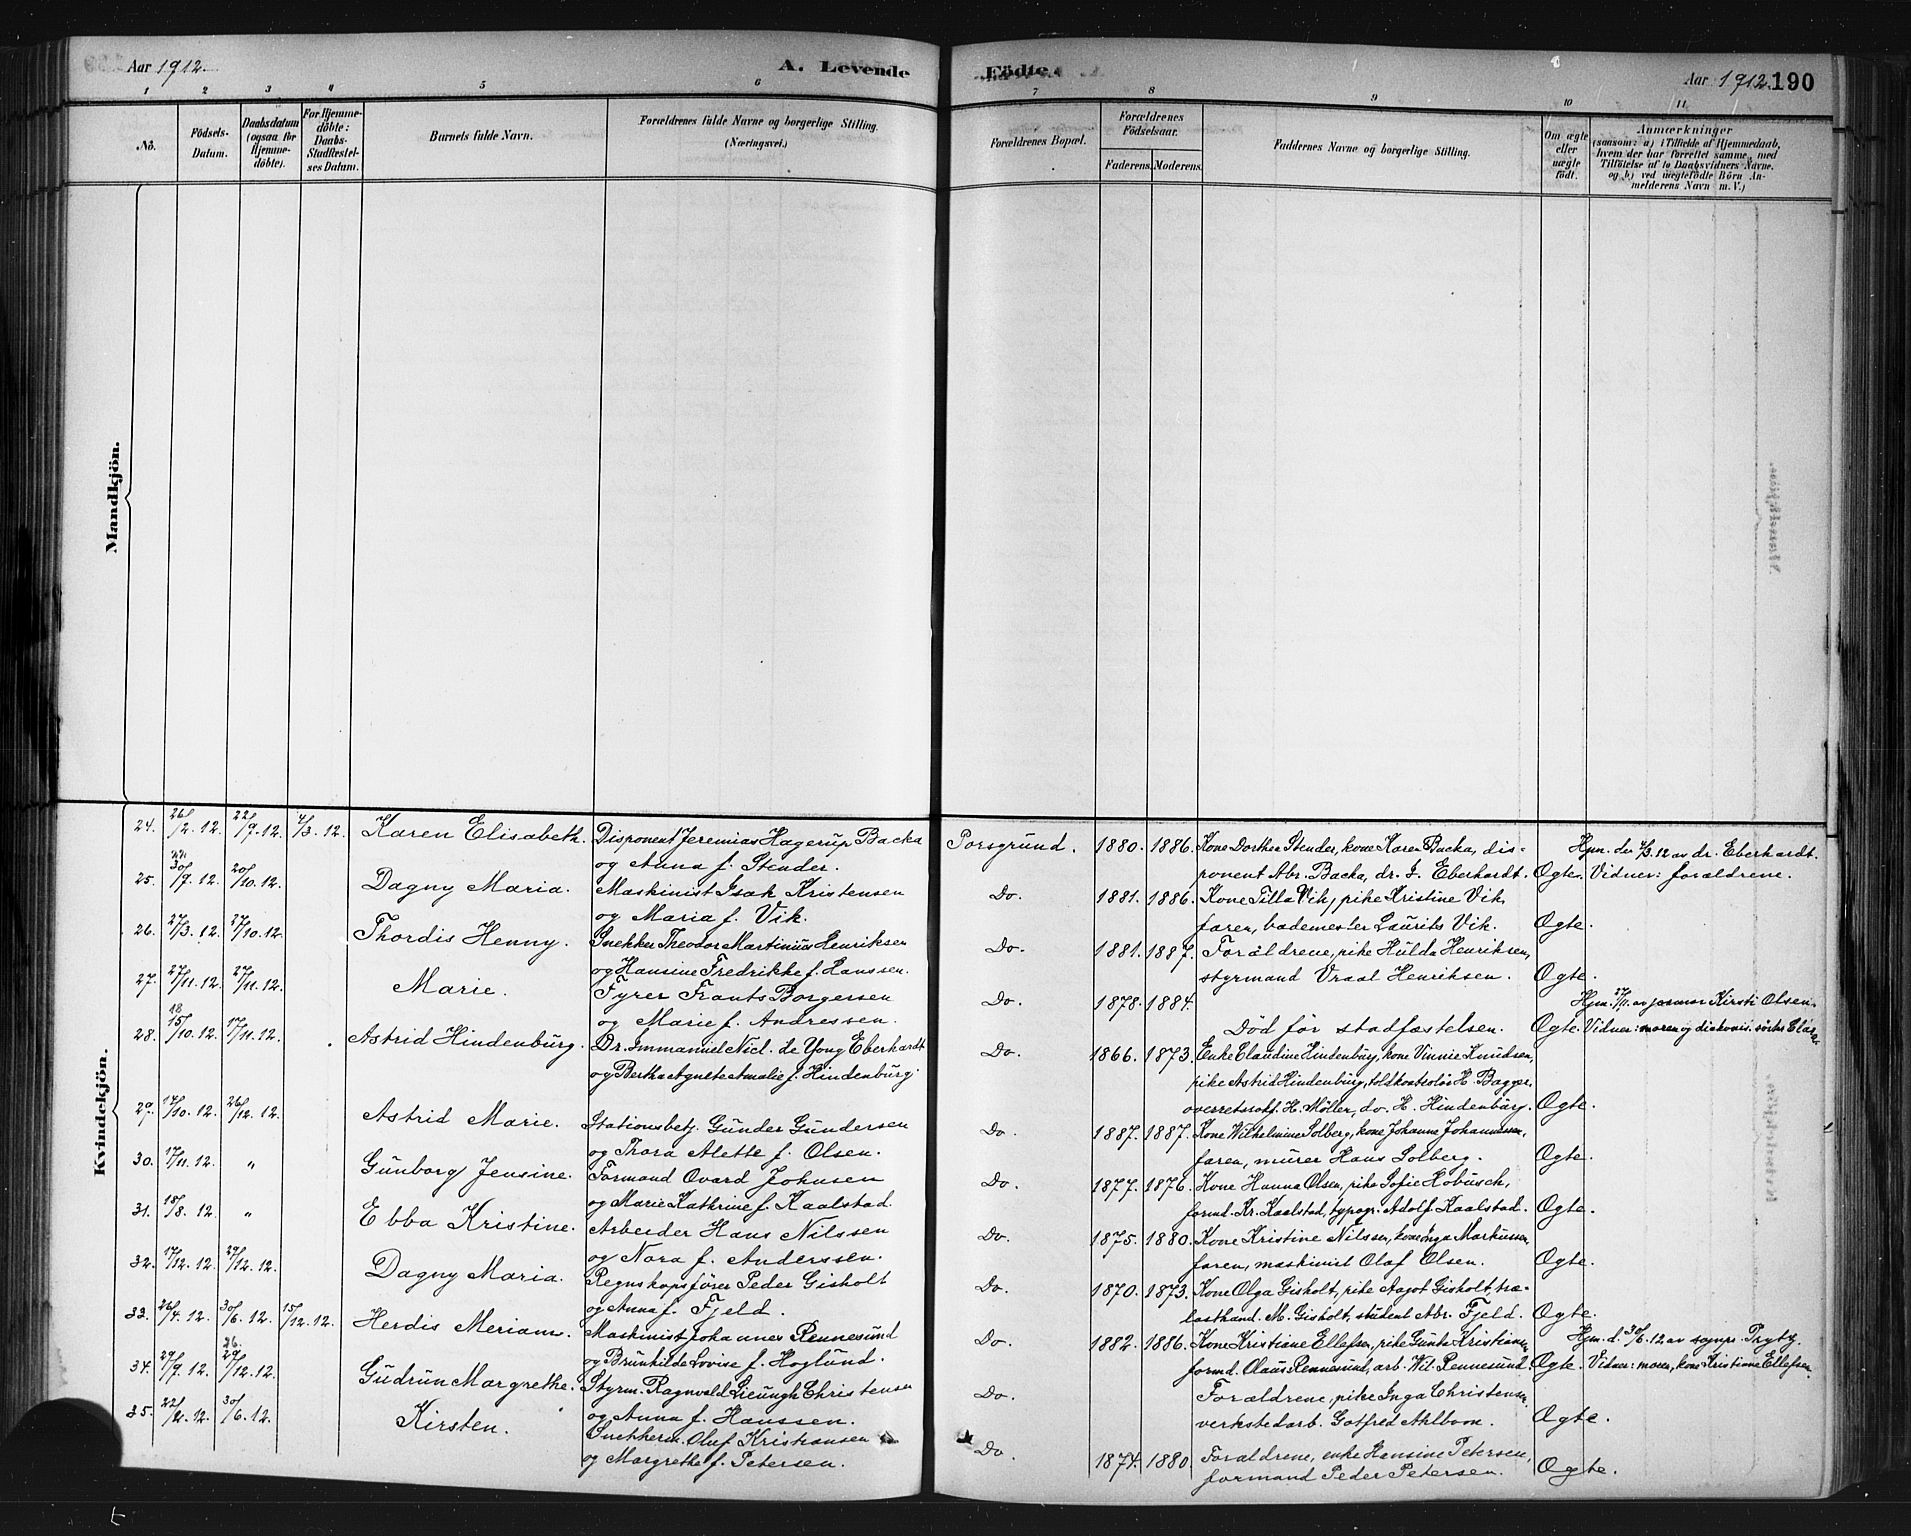 Aar 1912.
A. Levende
Födte.
Aar 1912. 190
1 2 3 4 5 6 7 8 9 10 11
No.
Födsels-
Datum.
Daabsdatum
(ogsaa for
Hjemme-
döbte).
For Hjemme-
döbte:
Daabs-
Stadfæstel-
ses Datum.
Barnets fulde Navn.
Forældrenes fulde Navne og borgerlige Stilling.
(Næringsvei.)
Forældrenes Bopæl.
Forældrenes
Födselsaar.
Faderens. Moderens.
Faddernes Navne og borgerlige Stilling.
Om ægte
eller
uægte
födt.
Anmærkninger
(saasom: a) i Tilfælde af Hjemmedaab,
hvem der har forrettet samme, med
Tilföielse af to Daabsvidners Navne.
og b) ved uægtefödte Börn An-
melderens Navn m. V.)
Mandkjön.
Kvindekjön.
24. 26/2. 12. 22/9. 12. 4/3. 12. Karen Elisabeth. Disponent Jeremias Hagerup Backa Porsgrund. 1880. 1886. Kone Dorthea Stender, kone Karen Backa, dis- Hjm. dø 4/3. 12 av dr. Eberhardt.
og Anna f. Stender. ponent Abr. Backa, dr. I. Eberhardt. Ogte. Vidner: forældrene.
25. 30/9. 12. 20/10. 12. Dagny Maria. Maskinist Isak Kristensen Do. 1881. 1886. Kone Tilla Vik, pike Kristine Vik,
og Maria f. Vik. faren, bademester Laurits Vik. Ogte.
26. 27/3. 12. 27/10. 12. Thordis Henny. Snekker Theodor Martinius Henriksen Do. 1881. 1887. Forældrene, pike Hulda Henriksen,
og Hansine Fredrikke f. Hanssen. styrmand Vraal Henriksen. Ogte.
27. 27/11. 12. 27/11. 12. Marie. Fyrer Frants Borgersen Do. 1878. 1884. Hjm. 27/11. av jormor Kirsti Olsen.
og Marie f. Andressen. Död før stadfæstelsen. Ogte. Vidner: moren og diakonis. søster Clara.
28. 15/10. 12. 17/11. 12. Astrid Hindenburg. Dr. Immanuel Nicl. de Yong Eberhardt Do. 1866. 1873. Enke Claudine Hindenburg, kone Vinnie Knudsen,
og Bertha Agnete Amalie f. Hindenburg. pike Astrid Hindenburg, toldkontrolør H. Bagger,
overretssakf. H. Møller, do. H. Hindenburg. Ogte.
29. 17/10. 12. 26/12. 12. Astrid Marie. Stationsbetj. Gunder Gundersen Do. 1887. 1887. Kone Wilhelmine Solberg, kone Johanne Johannessen,
og Thora Alette f. Olsen. faren, murer Hans Solberg. Ogte.
30. 17/11. 12. " Gunborg Jensine. Formand Ovard Johnsen Do. 1877. 1876. Kone Hanna Olsen, pike Sofie Hobusch,
og Marie Kathrine f. Kaalstad. formd. Kr. Kaalstad, typogr. Adolf Kaalstad. Ogte.
31. 15/8. 12. " Ebba Kristine. Arbeider Hans Nilssen Do. 1875. 1880. Kone Kristine Nilssen, kone Inga Markussen,
og Nora f. Anderssen. faren, maskinist Olaf Olsen. Ogte.
32. 17/12. 12. 29/12. 12. Dagny Maria. Regnskapsfører Peder Gisholt Do. 1870. 1873. Kone Olga Gisholt, pike Aagot Gisholt, træ-
og Anna f. Fjeld. lasthand. M. Gisholt, student Abr. Fjeld. Ogte.
33. 26/4. 12. 30/6. 12. 15/12. 12. Herdis Meriam. Maskinist Johannes Rennesund Do. 1882. 1886. Kone Kristiane Ellefsen, pike Gunda Kristiansen, Hjm. d. 30/6. 12 av sognepr. Prytz.
og Brunhilde Lovise f. Hoglund. formd. Olaus Rennesund, arb. Wil. Rennesund. Ogte. Vidner: moren, kone Kristiane Ellefsen.
34. 29/9. 12. 26/12. 12. Gudrun Margrethe. Styrm. Ragnvald Christensen Do. Forældrene, pike Inga Christensen,
og Anna f. Hanssen. verkstedarb. Gotfred Ahlbom. Ogte.
35. 22/2. 12. 30/6. 12. Kirsten. Oluf Kristiansen Do. 1874. 1880. Forældrene, enke Hansine Petersen,
og Margrethe f. Petersen. formand Peder Petersen. Ogte.